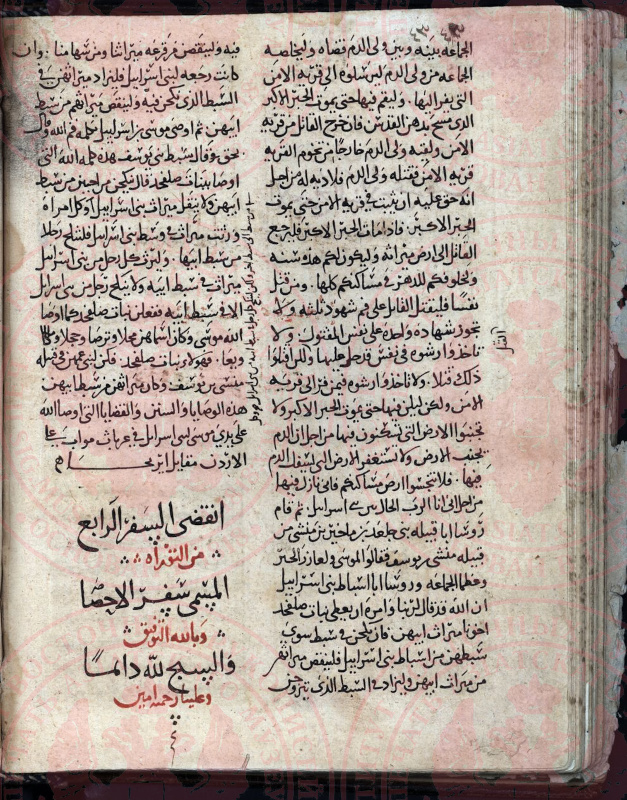 الجماعه بينه وبين ولى الدم قضاه وليخاصه
الجماعه من ولى الدم ليرسلوه الى قريه الامن
التى يفر اليها وليقم فيها حتى يموت الحبر الاكبر
الذى مسح بدهن القدس فان خرج القاتل من قريه
الامن ولقيه ولى الدم خارجًا من تخوم القريه
قريه الامن فقتله ولى الدم فلا ديه له من اجل
انه حق عليه ان يثبت فى قريه الامن حتى يموت
الحبر الاكبر فاذا مات الحبر الاكبر فليرجع
القاتل الى ارض ميراثه وليكون لكم هذه سنه
ولخلوفكم للدهر فى مساكنكم كلها ومن قتل
نفسًا فليقتل القاتل على فم شهود ثلثه ولا
تجوز شهاده واحده على نفس المقتول ولا
تاخذوا رشوه فى نفس قد حل عليها
ذلك قتلا ولا تاخذوا رشوه فيمن فر الى قريه
الامن ولكن ليلبث فيها حتى يموت الحبر الاكبر ولا
تجنبوا الارض التى تسكنون فيها من اجل ان الدم
يجنب الارض ولا تستغفر الارض التى يسفك الدم
فيها فلا تنجسوا ارض مساكنكم فانى نازل فيها
من اجل انى انا الرب الحال بين بنى اسراييل ثم قام
روسا ابا قبيله بنى جلعد بن ماخير بن منشى من
قبيله منشى بن يوسف فقالوا لموسى ولعازر الحبر
وعظما الجماعه وروسا ابا اسباط بنى اسراييل
ان الله قد قال لربنا وامره ان يعطى بنات صلفحد
اخونا ميراث ابيهن فان يكحن فى سبط سوى
سبطهن من اسباط بنى اسراييل فلينقص ميراثهن
من ميراث ابيهن وليزاد فى السبط الذى يتزوجن
القتل
فيه ولينقص من قرعه ميراثنا ومن سهامنا وان
كانت رجعه لبنى اسراييل فليزاد ميراثهن فى
السبط الذى يكحن فيه ولينقص ميراثهم من سبط
ابيهن ثم اوصى موسى بنى اسراييل من اجل فم الله وقال
بحق وقال سبط بنى يوسف هذه كلمه الله التى
اوصا بنات صلفحد قال يكحن من احببن من سبط
ابيهن ولا ينقل ميراث بنى اسراييل وكل امراه
ورثت ميراث فى وسط بنى اسراييل فلتنكح رجلا
من سبط ابيها وليرث كل رجل من بنى اسراييل
ميراث فى سبط ابيه ولا ينكح رجل من بنى اسراييل
الا فى سبط ابيه ففعلن بنات صلفحد كما اوصا
الله موسى وكان اسماهن محلا وترصا وحجلا وملكا
ونوعا فهولاء بنات صلفحد فكن لبنى عمهن فى قبيله
منسى بن يوسف وكان ميراثهن من سبط ابيهن
هذه الوصايا والسنن والقضايا التى اوصا الله
على يدى موسى لبنى اسراييل فى عربات مواب على
الاردن مقابل اريحا
انقضى السفر الرابع
من التوراه
المسمى سفر الاحصا
وبالله التوفيق
والسبح لله دائمًا
وعلينا رحمته امين